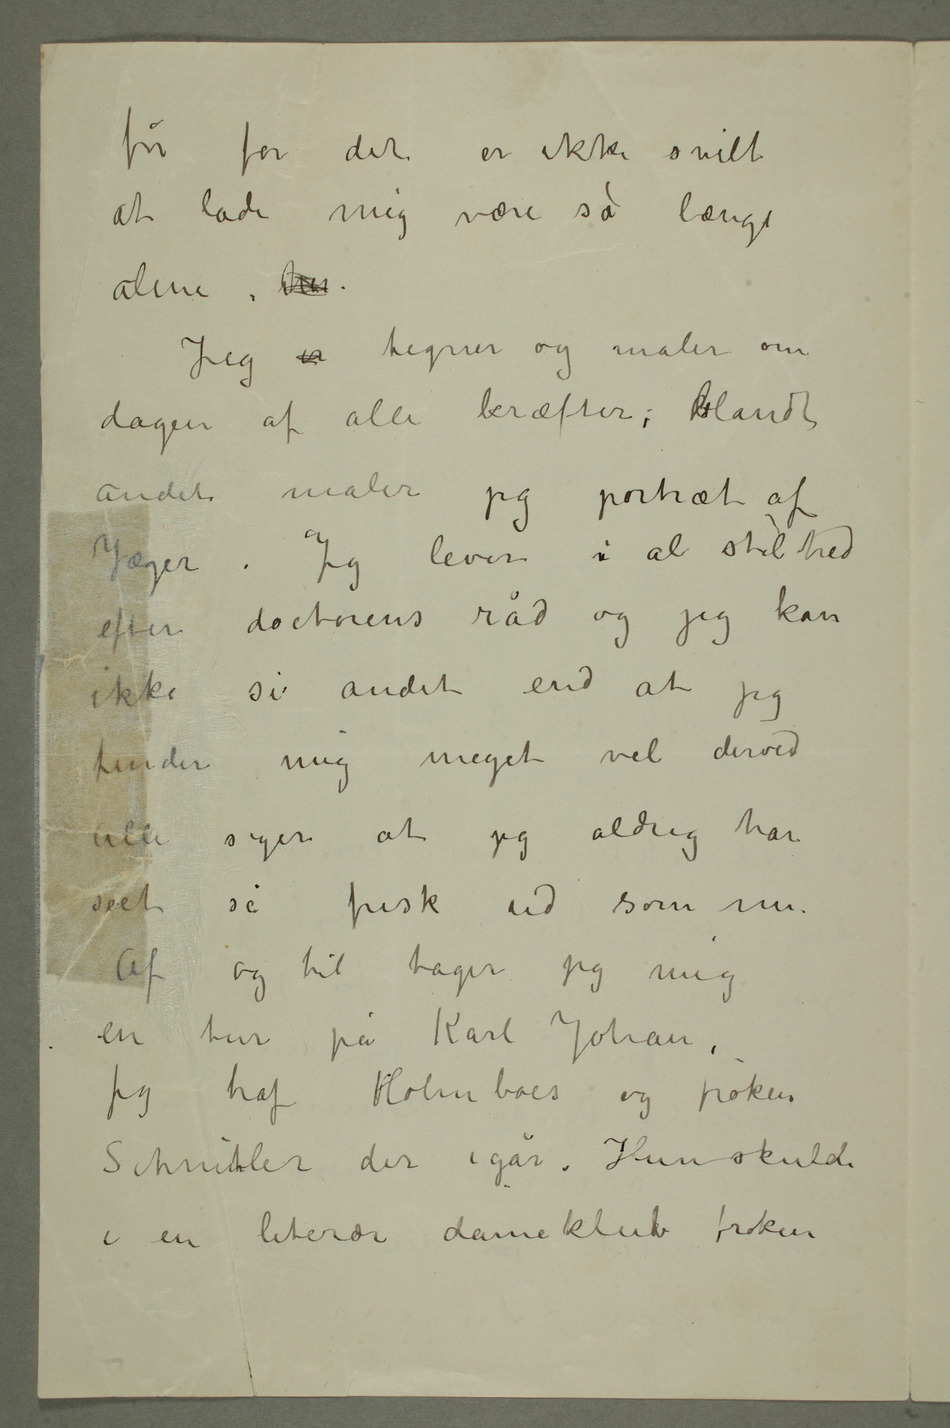 før for det er ikke snilt
at lade mig være så længe
alene.
Jeg er tegner og maler om
dagen af alle kræfter; blandt
andet maler jeg portræt af
Jæger. Jeg lever i al stilhed
efter doctorens råd og jeg kan
ikke si andet end at jeg
finder mig meget vel derved
alle siger at jeg aldrig har
seet så frisk ud som nu.
Af og til tager jeg mig
en tur på Karl Johan,
Jeg traf Holmboes og frøken
Schnitler der igår. Hun skulde
i en literær dameklub frøken